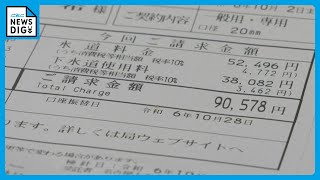 NEWS
DIG
6年10月2日
ご契約内容 一般用・専用
口径 20mm
今回ご請求金額
水道料金 52,496円
(うち消費税等相当額 税率10% 4,772円)
下水道使用料 38,082円
(うち消費税等相当額 税率10% 3,462円)
ご請求金額
Total Charge 90,578円
口座振替日 令和 6年10月28日
ります。詳しくは局ウェブサイトへ